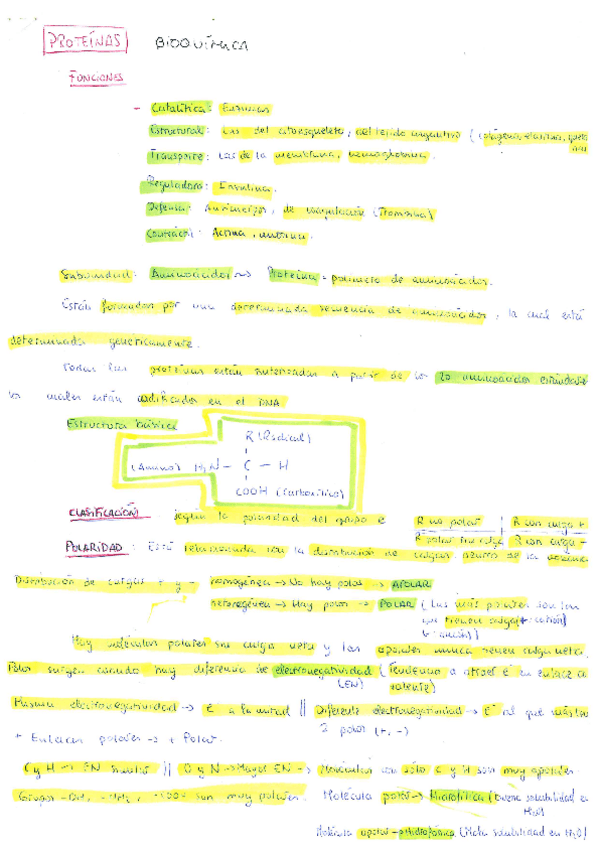 PROTEÍNAS BIOQUÍMICA
FUNCIONES
- Catalítica: Enzimas
Estructural: Las del citoesqueleto, del tejido conjuntivo (colágeno, elastina, queratina
Transporte: Las de la membrana, hemoglobina.
Reguladora: Insulina.
Defensa: de coagulación (Trombina)
Contráctil: Actina, miosina.
Subunidad: Aminoácidos → Proteína = polímero de aminoácidos.
Están formadas por una determinada secuencia de aminoácidos, la cual está
determinada genéticamente.
Todas las proteínas están sintetizadas a partir de los 20 aminoácidos estándar
los cuales están codificados en el DNA
Estructura básica
R (Radical)
(Amino) H₂N - C - H
COOH (Carboxílico)
CLASIFICACIÓN según la polaridad del grupo R no polar | R con carga +
R polar sin carga | R con carga -
POLARIDAD: Está relacionada con la distribución de cargas dentro de la molécula
Distribución de cargas + y - homogénea → No hay polos → APOLAR
heterogénea → Hay polos → POLAR (Las más polares son las
que tienen carga
Hay moléculas polares sin carga neta y las apolares nunca tienen carga neta.
Polos surgen cuando hay diferencia de electronegatividad (Tendencia a atraer é en enlace covalente)
(EN)
Misma electronegatividad → é a la mitad || Diferente electronegatividad → é al que más tire
2 polos (+, -)
+ Enlaces polares → + Polar.
C y H → EN similar || O y N → Mayor EN → Moléculas con sólo C y H son muy apolares
Grupos -OH, -NH₂, -COOH son muy polares. Molécula polar → Hidrofílica (buena solubilidad en
H₂O)
Molécula apolar → Hidrofóbica (Mala solubilidad en H₂O)